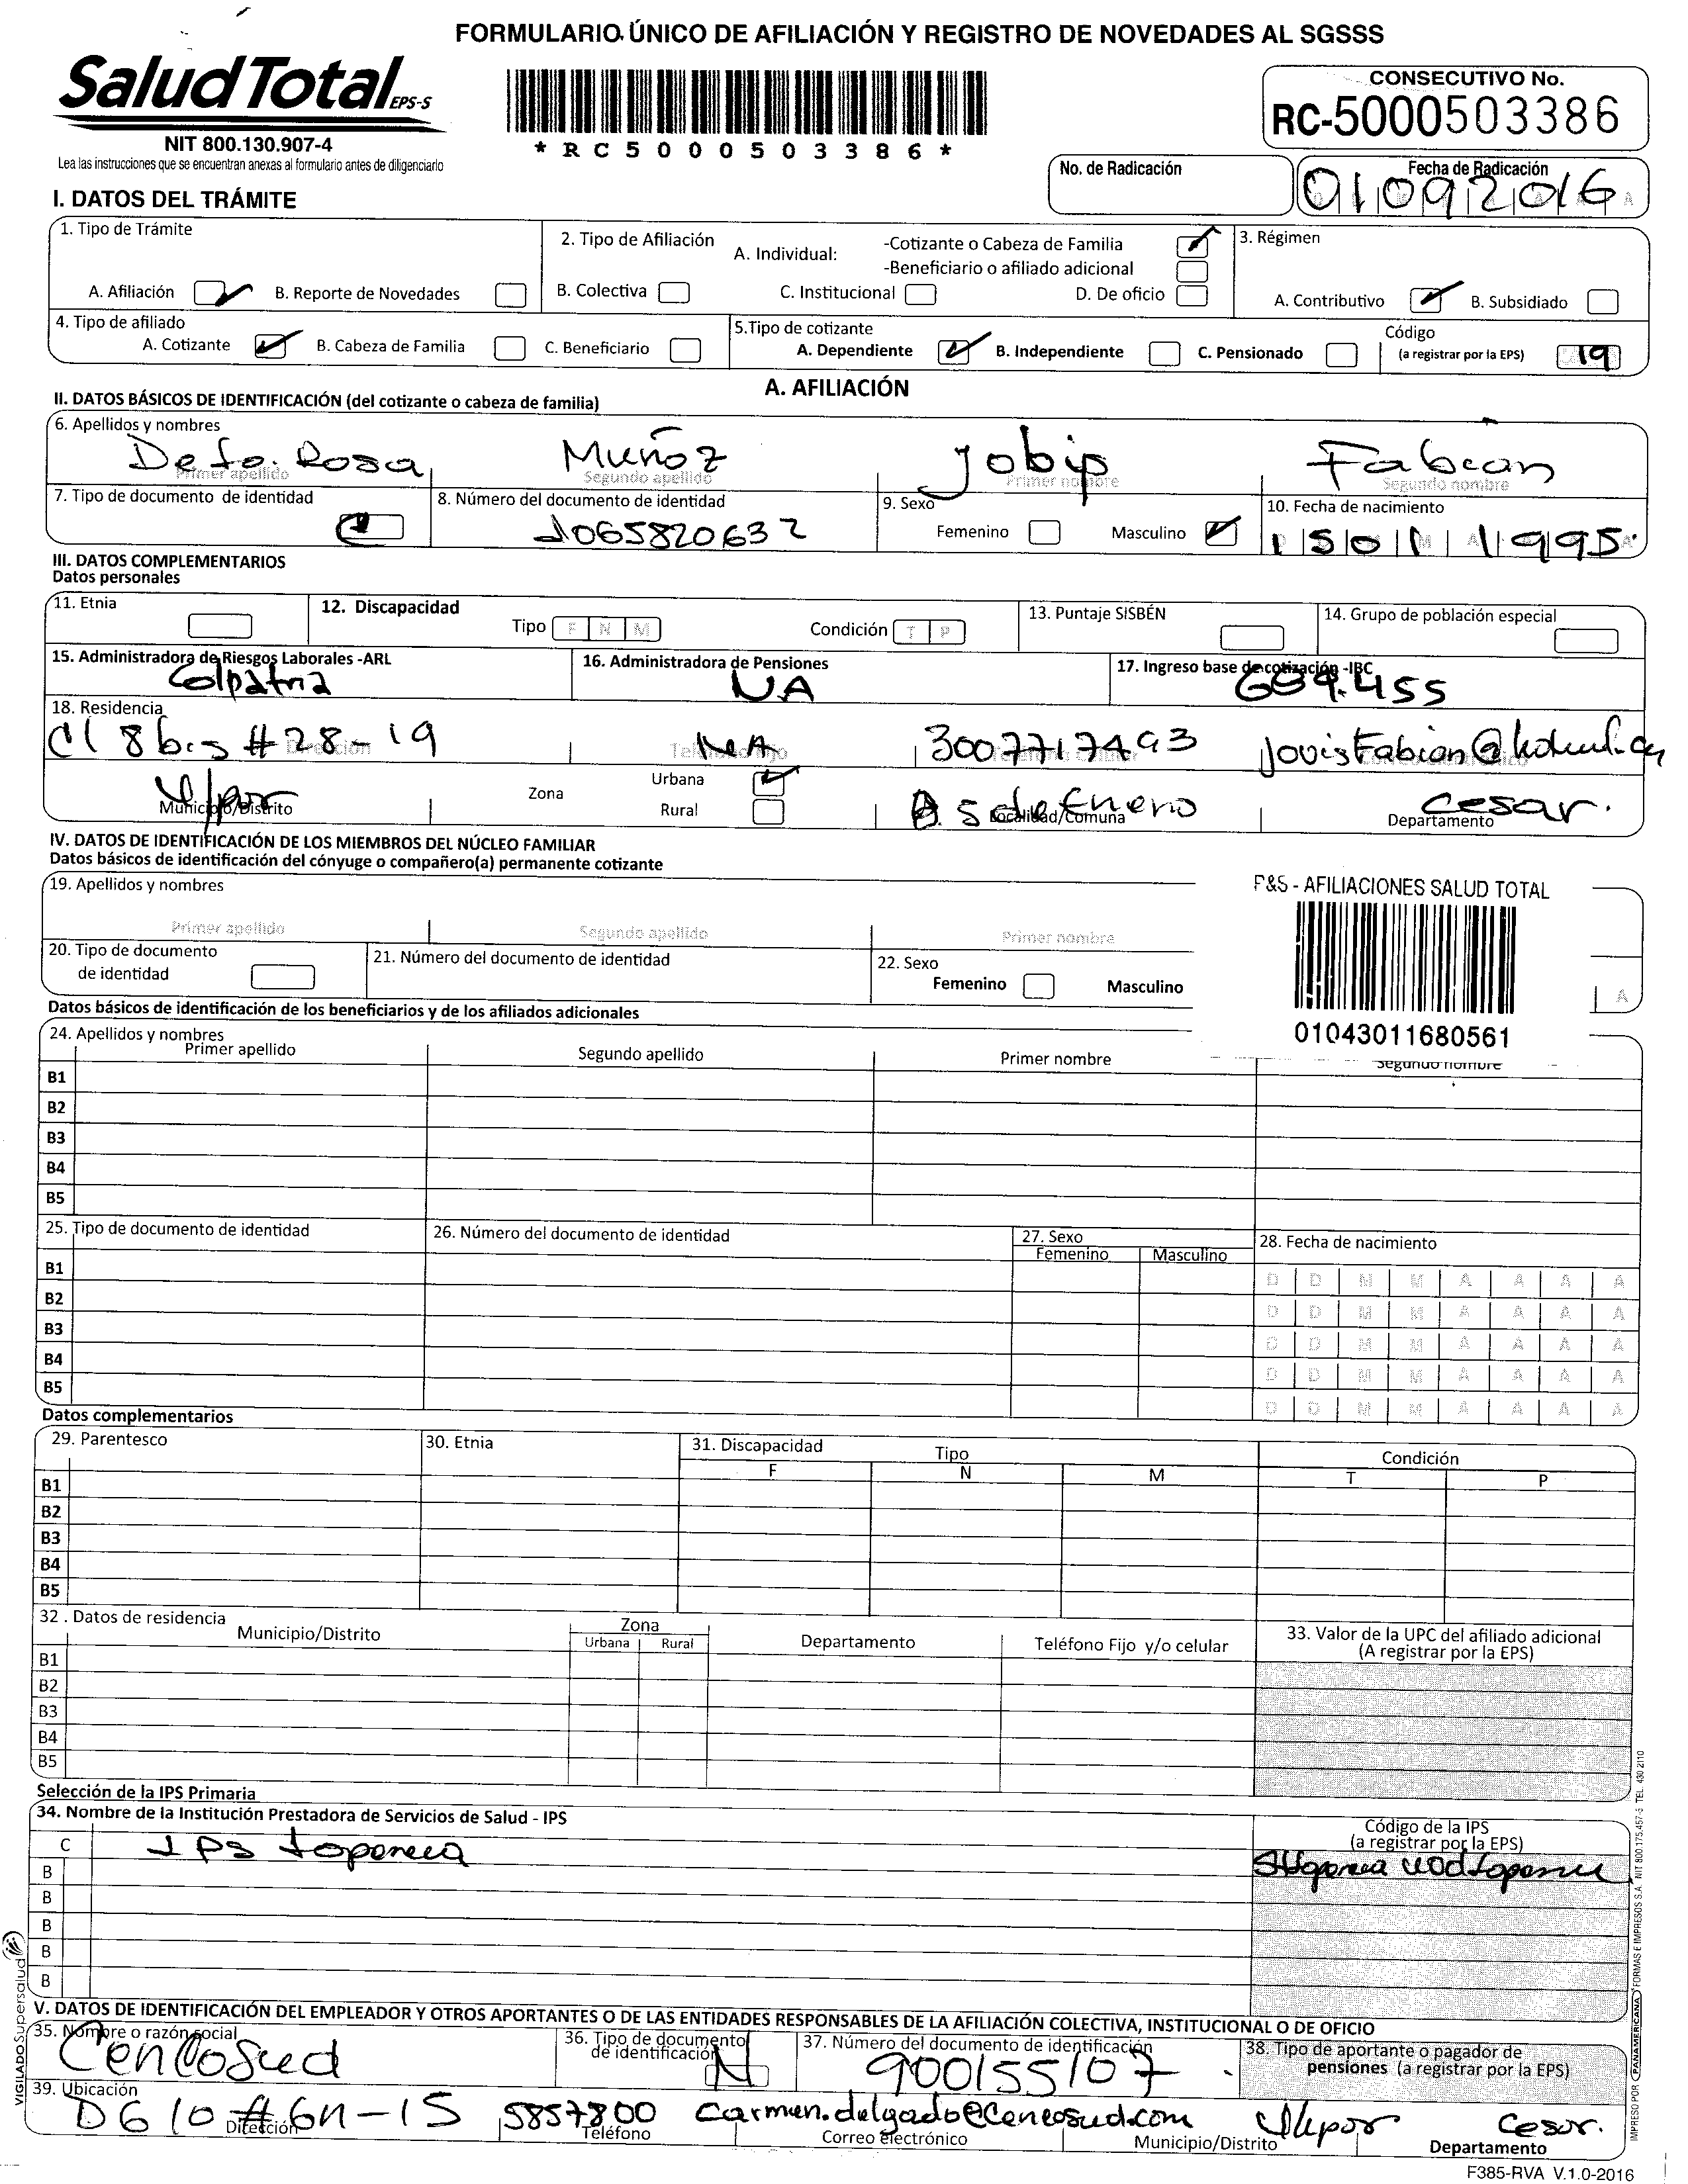 FORMULARIO ÚNICO DE AFILIACIÓN Y REGISTRO DE NOVEDADES AL SGSSS
SaludTotal EPS-S
NIT 800.130.907-4
Lea las instrucciones que se encuentran anexas al formulario antes de diligenciarlo
*RC5000503386*
CONSECUTIVO No.
RC-5000503386
No. de Radicación
Fecha de Radicación
01092016
I. DATOS DEL TRÁMITE
1. Tipo de Trámite
A. Afiliación B. Reporte de Novedades
2. Tipo de Afiliación A. Individual: -Cotizante o Cabeza de Familia
-Beneficiario o afiliado adicional
B. Colectiva C. Institucional D. De oficio
3. Régimen
A. Contributivo B. Subsidiado
4. Tipo de afiliado
A. Cotizante B. Cabeza de Familia C. Beneficiario
5.Tipo de cotizante
A. Dependiente B. Independiente C. Pensionado
Código
(a registrar por la EPS) 19
A. AFILIACIÓN
II. DATOS BÁSICOS DE IDENTIFICACIÓN (del cotizante o cabeza de familia)
6. Apellidos y nombres
De la Rosa Muñoz Jobip Fabian
Primer apellido Segundo apellido Primer nombre Segundo nombre
7. Tipo de documento de identidad
8. Número del documento de identidad
1065820632
9. Sexo
Femenino Masculino
10. Fecha de nacimiento
15011995
III. DATOS COMPLEMENTARIOS
Datos personales
11. Etnia
12. Discapacidad
Tipo F N M Condición T P
13. Puntaje SISBÉN
14. Grupo de población especial
15. Administradora de Riesgos Laborales -ARL
Colpatria
16. Administradora de Pensiones
NA
17. Ingreso base de cotización -IBC
689.455
18. Residencia
Cl 8 bis # 28-19 NA 3007717493
Dirección Teléfono Fijo Teléfono Celular Correo electrónico
V/par
Municipio/Distrito
Zona Urbana
Rural
5 de Enero
Localidad/Comuna
Cesar.
Departamento
IV. DATOS DE IDENTIFICACIÓN DE LOS MIEMBROS DEL NÚCLEO FAMILIAR
Datos básicos de identificación del cónyuge o compañero(a) permanente cotizante
19. Apellidos y nombres
Primer apellido Segundo apellido Primer nombre
P&S - AFILIACIONES SALUD TOTAL
01043011680561
20. Tipo de documento
de identidad
21. Número del documento de identidad
22. Sexo
Femenino Masculino
A
Datos básicos de identificación de los beneficiarios y de los afiliados adicionales
24. Apellidos y nombres
Primer apellido Segundo apellido Primer nombre Segundo nombre
B1
B2
B3
B4
B5
25. Tipo de documento de identidad
26. Número del documento de identidad
27. Sexo
Femenino Masculino
28. Fecha de nacimiento
B1 D D M M A A A A
B2 D D M M A A A A
B3 D D M M A A A A
B4 D D M M A A A A
B5 D D M M A A A A
Datos complementarios
29. Parentesco 30. Etnia 31. Discapacidad Tipo Condición
F N M T P
B1
B2
B3
B4
B5
32 . Datos de residencia
Municipio/Distrito Zona Departamento Teléfono Fijo y/o celular
Urbana Rural
33. Valor de la UPC del afiliado adicional
(A registrar por la EPS)
B1
B2
B3
B4
B5
Selección de la IPS Primaria
34. Nombre de la Institución Prestadora de Servicios de Salud - IPS
Código de la IPS
(a registrar por la EPS)
C IPS
B
B
B
B
B
V. DATOS DE IDENTIFICACIÓN DEL EMPLEADOR Y OTROS APORTANTES O DE LAS ENTIDADES RESPONSABLES DE LA AFILIACIÓN COLECTIVA, INSTITUCIONAL O DE OFICIO
35. Nombre o razón social
Cencosud
36. Tipo de documento
de identificación
N
37. Número del documento de identificación
900155107
38. Tipo de aportante o pagador de
pensiones (a registrar por la EPS)
39. Ubicación
DG 10 # 6N-15 5857800 carmen.delgado@cencosud.com V/par Cesar.
Dirección Teléfono Correo electrónico Municipio/Distrito Departamento
F385-RVA V.1.0-2016
VIGILADO Supersalud
IMPRESO POR PANAMERICANA FORMAS E IMPRESOS S.A. NIT 800.175.457-5 TEL. 430 2110